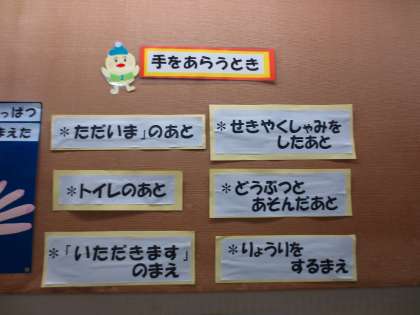 手をあらうとき
っぱつ
まえた
＊ただいま」のあと
＊せきやくしゃみを
したあと
＊トイレのあと
＊どうぶつと
あそんだあと
＊「いただきます」
のまえ
＊りょうりを
するまえ